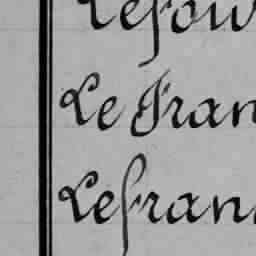 Lefour
Le Fran
Lefran